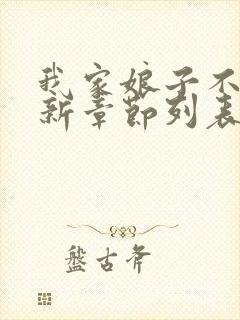 我家娘子不
新章節列表
盤古斧